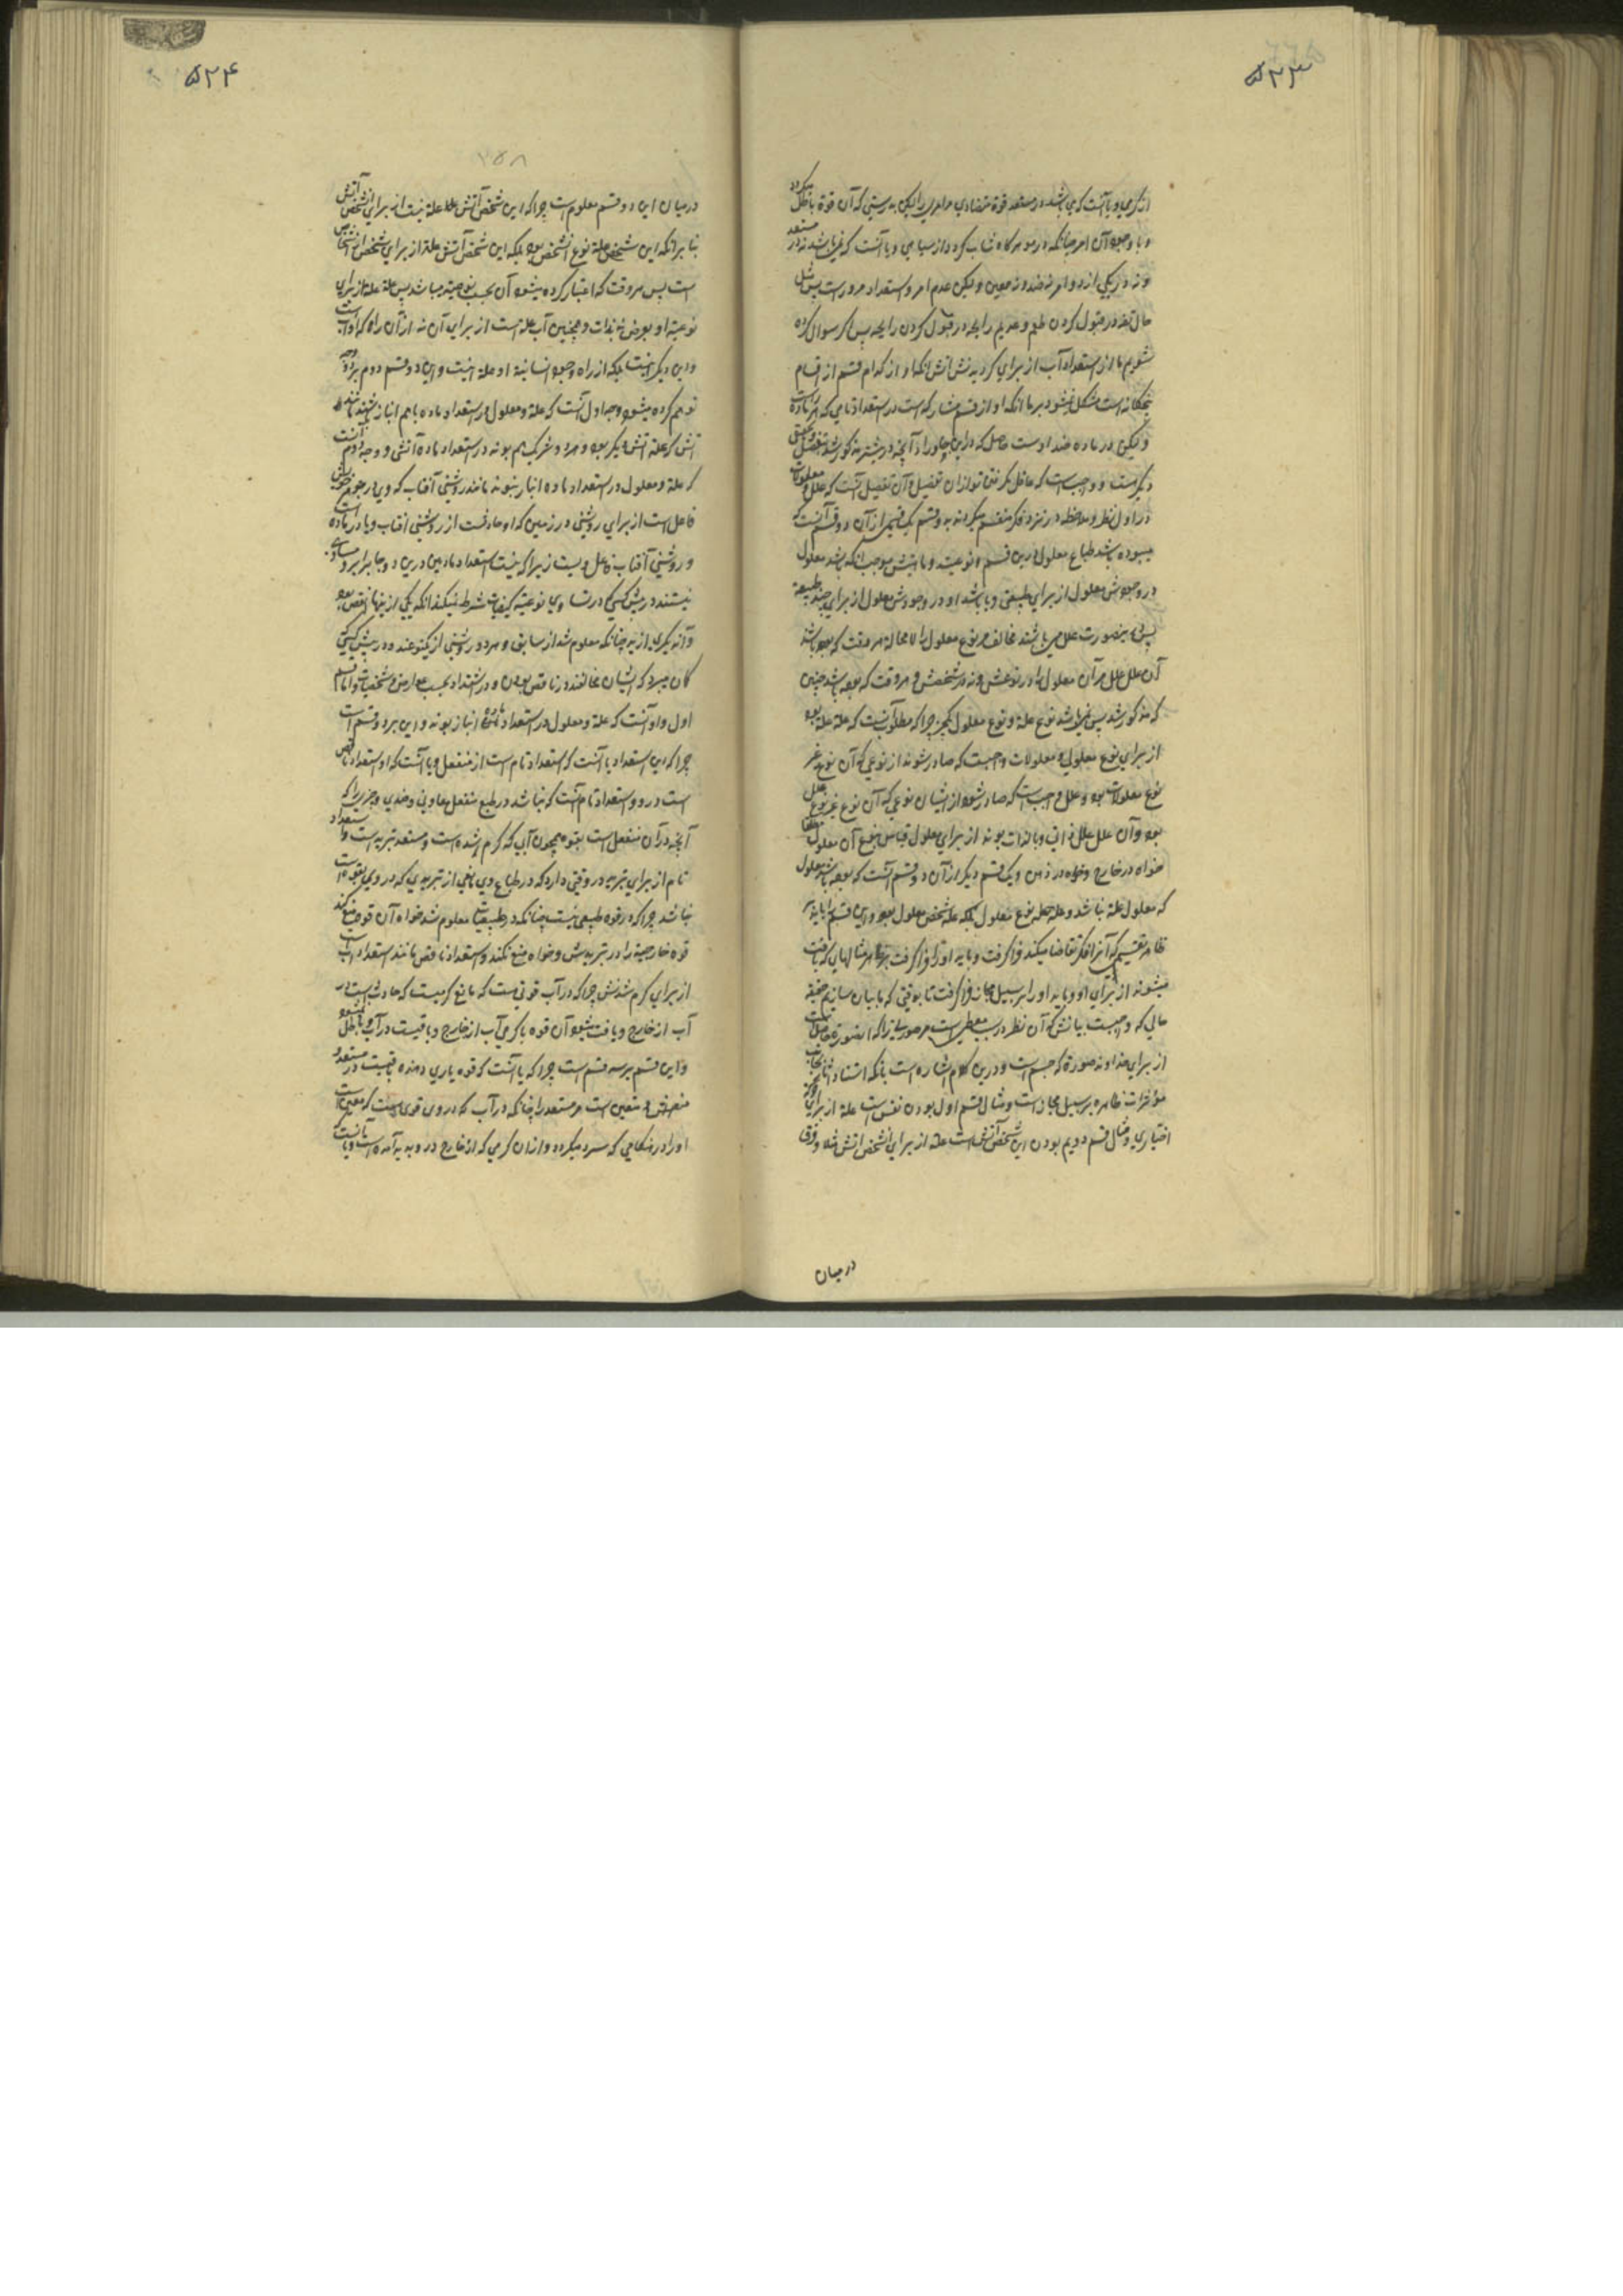 ۵۲۳
از گرمی و یا آنست که می‌باشد در مستعد قوة متضادی مر امری را لیکن به درستی که آن قوة باطل میگردد
و با وجود آن امر چنانکه در مو هرگاه شاب گردد از سیاهی و یا آنست که نمی‌باشد نه در مستعد
و نه در یکی از دو امر نه ضد و نه معین و لیکن عدم امر و استعداد مر او راست پس مثل
حال تفه در قبول کردن طعم و عدیم رایحه در قبول کردن رایحه پس اگر سوال کرده
شویم ما از استعداد آب از برای گردیدنش آتش آنکه او از کدام قسم از اقسام
پنجگانه است مشکل نمیشود بر ما آنکه او از قسم مشارکه است در استعداد تامی که
و لیکن در ماده ضد اوست حاصل که در این جا ورای آنچه در پیشتر مذکور شد تفصیل
دیگر هست و واجب است که غافل نگردی تو از آن تفصیل و آن تفصیل آنست که علل و معلولات
در اول نظر و ملاحظه در نزد فکر منقسم میگردند به دو قسم یک قسمی از آن دو قسم آنست که
میبوده باشد طباع معلول درین قسم و نوعیت و ماهیتش موجب آنکه باشد معلول
در وجودش معلول از برای طبیعتی و یا باشد او در وجودش معلول از برای چند طبیعة
پس درینصورت علل می‌باشند مخالف مر نوع معلول را لا محاله هر وقت که بوده باشد
آن علل علل مر آن معلول را در نوعش و نه در شخصش و هر وقت که بوده باشد چنین
که مذکور شد پس نمی‌باشد نوع علة و نوع معلول یکی چرا که مطلوب آنست که علة علة بود
از برای نوع معلولی و معلولات واجبست که صادر شوند از نوعی که آن نوع غیر
نوع معلولات بود و علل واجب است که صادر شود از ایشان نوعی که آن نوع غیر نوع علل
بود و آن علل علل ذاتی و بالذات بوند از برای معلول قیاس بنوع آن معلول مطلقا
خواه در خارج و خواه در ذهن و یک قسم دیگر از آن دو قسم آنست که بوده باشد معلول
که معلول علة نباشد و علة علة نوع معلول بلکه علة شخص معلول بود و این قسم را باید
ظاهر تقسیمی که آنرا فکر تقاضا میکند فرا گرفت و باید او را فرا گرفت بر ظاهر مثالهایی که یافت
میشوند از برای او و باید او را بر سبیل مجاز فرا گرفت تا بوقتی که ما بیان سازیم حقیقة
حالی که واجبست بیانش که آن نظر در سبب معطی است مر صورتی را که آنصورة حاصلست
از برای خداوند صورة که جسم است و درین کلام اشاره است بآنکه استناد آثار بجانب
مؤثرات ظاهره بر سبیل مجاز است و مثال قسم اول بودن نفس است علة از برای حرکة
اختیاری و مثال قسم دویم بودن این شخص آتش است علة از برای شخص آتش شد و فرق
درمیان
۵۲۴
۲۵۸
درمیان این دو قسم معلوم است چرا که این شخص آتش علة نیست از برای شخص آتش
بنا بر آنکه این شخص علة نوع آن شخص بود بلکه این شخص آتش علة از برای شخص آن
است پس هر وقت که اعتبار کرده میشود آن بحسب نوعیت میباشد پس علة علة از برای
نوعیة او بعرض نه بذات و همچنین آب علة است از برای آن نه از آن راه که او آب است
و این دیگر نیست بلکه از راه وجود انسانیة او علة انیت و این دو قسم دوم بر دو وجه
توهم کرده میشود وجه اول آنست که علة و معلول در استعداد ماده باهم انباز باشند مانند
آتش که علة آتش دیگر بود و هر دو شریک هم بوند در استعداد ماده آتشی و وجه دوم آنست
که علة و معلول در استعداد ماده انباز نبوند مانند روشنی آفتاب که وی در جوهر خویش
فاعل است از برای روشنی در زمین که او حادث است از روشنی آفتاب و یا در ماه
و روشنی آفتاب فاعل ویست زیرا که نیست استعداد مادین درین دو جا برابر و مساوی
نیستند در پیش کسی که در تساوی نوعیة کیفیات شرط نمیکند آنکه یکی از ینها ناقص بود
و آن دیگری ازید چنانکه معلوم شد از سابق و هر دو روشنی از یک نوعند و در پیش کسی
گمان میبرد که ایشان مخالفند در ناقص بودن و در اشتداد بحسب عوارض و مشخصات و اما قسم
اول و او آنست که علة و معلول در استعداد ماده انباز بوند و این بر دو قسم است
چرا که این استعداد یا آنست که استعداد تام است از منفعل و یا آنست که او استعداد ناقص
است در و و استعداد تام آنست که نباشد در طبع منفعل معاونی و ضدی و چیزی را که
آنچه در آن منفعل است بقوه همچون آبی که گرم شده است و مستعد تبرید است و استعداد
تام از برای تبرید در وقتی دارد که در طباع وی مانعی از تبریدی که در وی بقوه است
نباشد چرا که در قوه طبیعی نیست چنانکه در طبیعیات معلوم شد خواه آن قوه منع کند
قوه خارجیة را در تبریدش و خواه منع نکند و استعداد ناقص مانند استعداد آبست
از برای گرم شدنش چرا که در آب قوتی هست که مانع گرمیست که حادث است در
آب از خارج و یافت میشود آن قوه با گرمی آب از خارج و باقیست در آب و باطل نمیشود
و این قسم بر سه قسم است چرا که یا آنست که قوه یاری دهنده باقیست در مستعد
منصرف و معین است مر مستعد را چنانکه در آب که در وی قوی هست که معین است
او را در هنگامی که سرد میگردد و از آن گرمی که از خارج در و پدید آمده است و یا آنست که